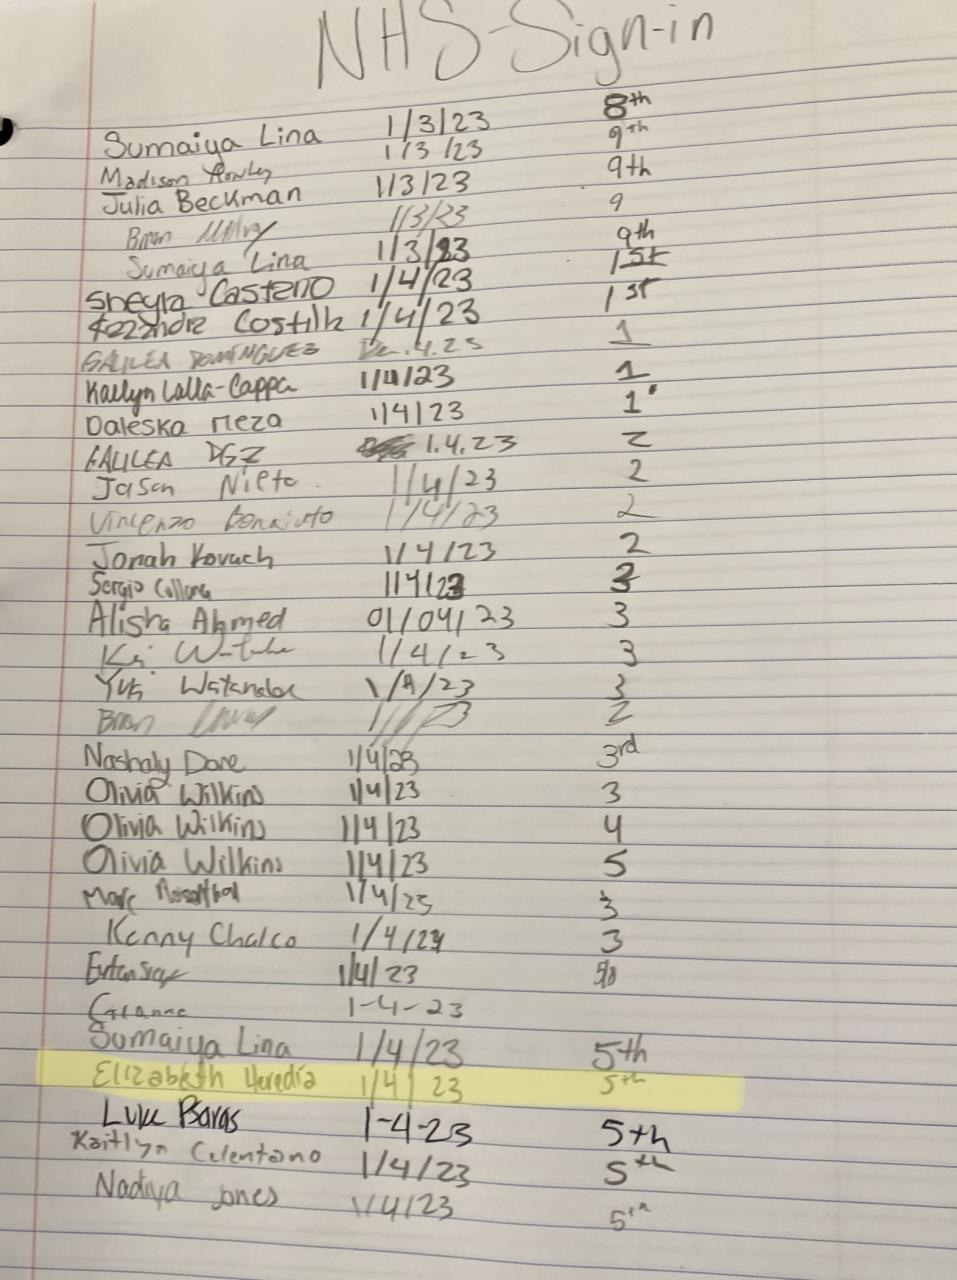 NHS-Sign-in
Sumaiya Lina 1/3/23 8th
Madison 1/3/23 9th
Julia Beckman 1/3/23 9th
Brian 1/3/23 9
Sumaiya Lina 1/3/23 9th
Sheyla 1/4/23 1st
1/4/23 1st
GALILEA DOMINGUEZ 1
Kaelyn Lalla-Cappa 1/4/23 1
Daleska Meza 1/4/23 1
GALILEA DGZ 1.4.23 2
Jason Nieto 1/4/23 2
Vincenzo 1/4/23 2
Jonah Kovach 1/4/23 2
Sergio 1/4/23 3
Alisha Ahmed 01/04/23 3
1/4/23 3
Yuki 1/4/23 3
Brian 2
Nashaly Dore 1/4/23 3rd
Olivia Wilkins 1/4/23 3
Olivia Wilkins 1/4/23 4
Olivia Wilkins 1/4/23 5
Marc Rosenthal 1/4/23 3
Kenny Chalco 1/4/23 3
1/4/23
1-4-23
Sumaiya Lina 1/4/23 5th
Elizabeth Heredia 1/4/23 5th
Luke Baras 1-4-23 5th
Kaitlyn Celentano 1/4/23 5th
Nadiya Jones 1/4/23 5th